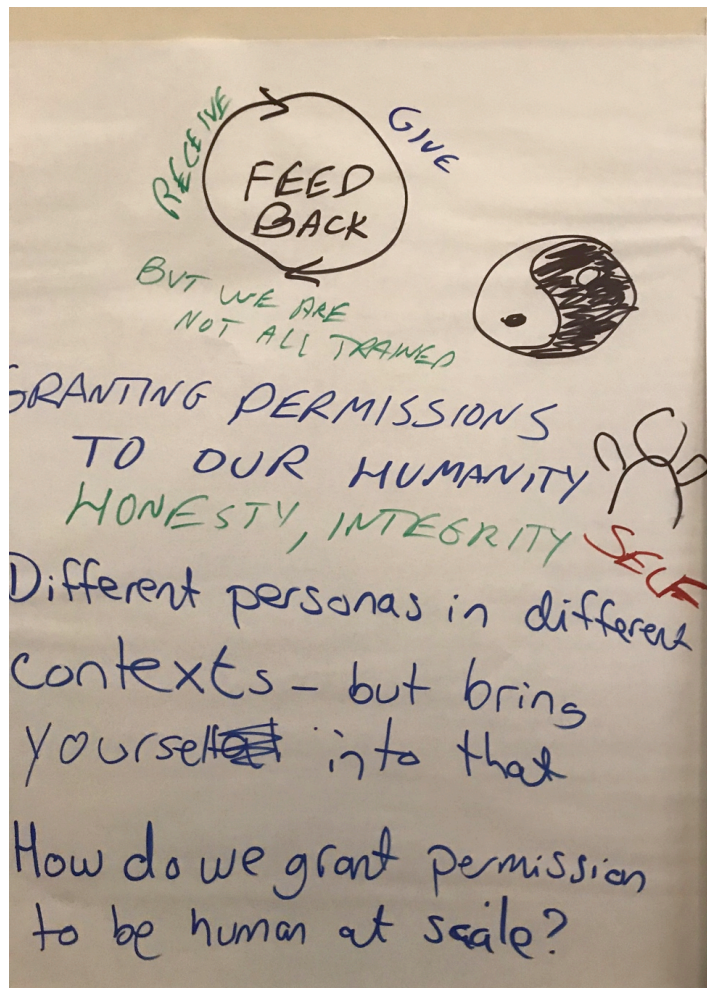 RECEIVE
GIVE
FEED
BACK
BUT WE ARE
NOT ALL TRAINED
GRANTING PERMISSIONS
TO OUR HUMANITY
HONESTY, INTEGRITY
SELF
Different personas in different
contexts - but bring
yourself into that
How do we grant permission
to be human at scale?